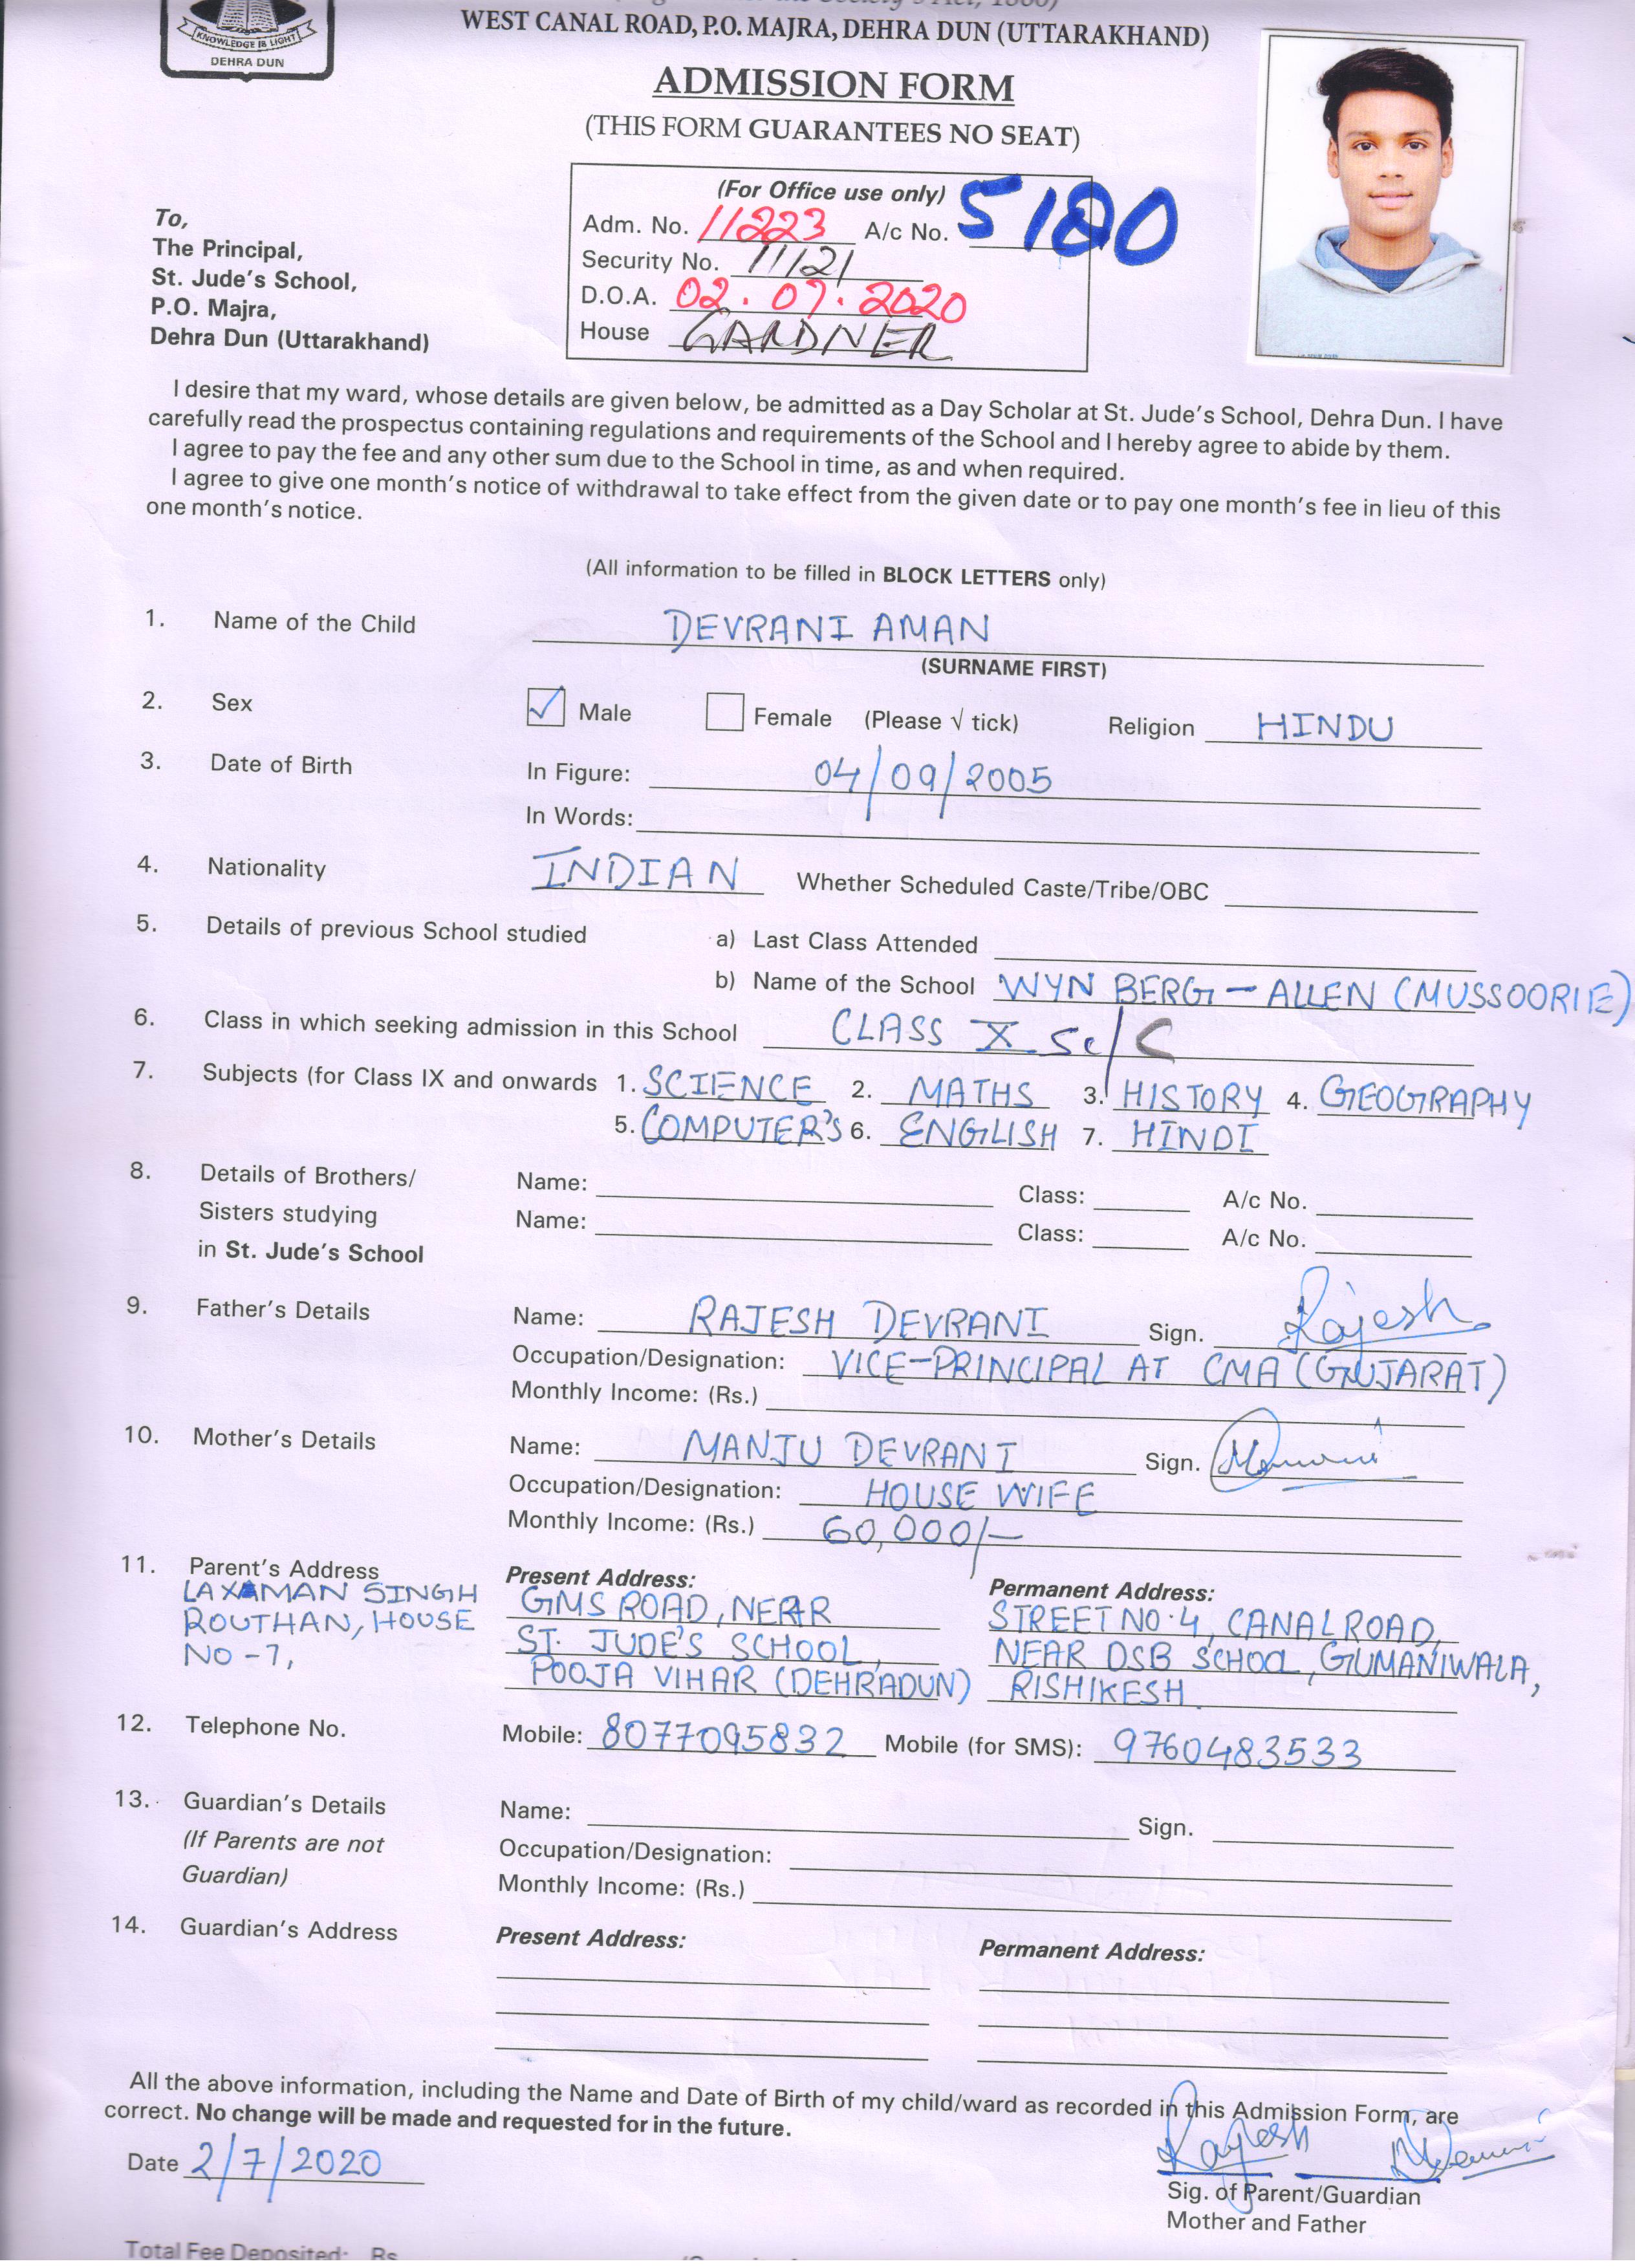 KNOWLEDGE IS LIGHT
DEHRA DUN
WEST CANAL ROAD, P.O. MAJRA, DEHRA DUN (UTTARAKHAND)
ADMISSION FORM
(THIS FORM GUARANTEES NO SEAT)
(For Office use only)
Adm. No. 11223 A/c No. 5180
Security No. 11121
D.O.A. 02.07.2020
House GARDNER
To,
The Principal,
St. Jude's School,
P.O. Majra,
Dehra Dun (Uttarakhand)
I desire that my ward, whose details are given below, be admitted as a Day Scholar at St. Jude's School, Dehra Dun. I have
carefully read the prospectus containing regulations and requirements of the School and I hereby agree to abide by them.
I agree to pay the fee and any other sum due to the School in time, as and when required.
I agree to give one month's notice of withdrawal to take effect from the given date or to pay one month's fee in lieu of this
one month's notice.
(All information to be filled in BLOCK LETTERS only)
1. Name of the Child DEVRANI AMAN
(SURNAME FIRST)
2. Sex ✓ Male Female (Please √ tick) Religion HINDU
3. Date of Birth In Figure: 04/09/2005
In Words:
4. Nationality INDIAN Whether Scheduled Caste/Tribe/OBC
5. Details of previous School studied a) Last Class Attended
b) Name of the School WYN BERG - ALLEN (MUSSOORIE)
6. Class in which seeking admission in this School CLASS X Sc/C
7. Subjects (for Class IX and onwards 1. SCIENCE 2. MATHS 3. HISTORY 4. GEOGRAPHY
5. COMPUTER'S 6. ENGLISH 7. HINDI
8. Details of Brothers/ Name: Class: A/c No.
Sisters studying Name: Class: A/c No.
in St. Jude's School
9. Father's Details Name: RAJESH DEVRANI Sign. Rajesh
Occupation/Designation: VICE-PRINCIPAL AT CMA (GUJARAT)
Monthly Income: (Rs.)
10. Mother's Details Name: MANJU DEVRANI Sign.
Occupation/Designation: HOUSE WIFE
Monthly Income: (Rs.) 60,000/-
11. Parent's Address Present Address: Permanent Address:
LAXAMAN SINGH GMS ROAD, NEAR STREET NO.4, CANAL ROAD,
ROUTHAN, HOUSE ST. JUDE'S SCHOOL, NEAR DSB SCHOOL, GUMANIWALA,
NO-7, POOJA VIHAR (DEHRADUN) RISHIKESH.
12. Telephone No. Mobile: 8077095832 Mobile (for SMS): 9760483533
13. Guardian's Details Name: Sign.
(If Parents are not Occupation/Designation:
Guardian) Monthly Income: (Rs.)
14. Guardian's Address Present Address: Permanent Address:
All the above information, including the Name and Date of Birth of my child/ward as recorded in this Admission Form, are
correct. No change will be made and requested for in the future.
Date 2/7/2020 Rajesh
Sig. of Parent/Guardian
Mother and Father
Total Fee Deposited: Rs